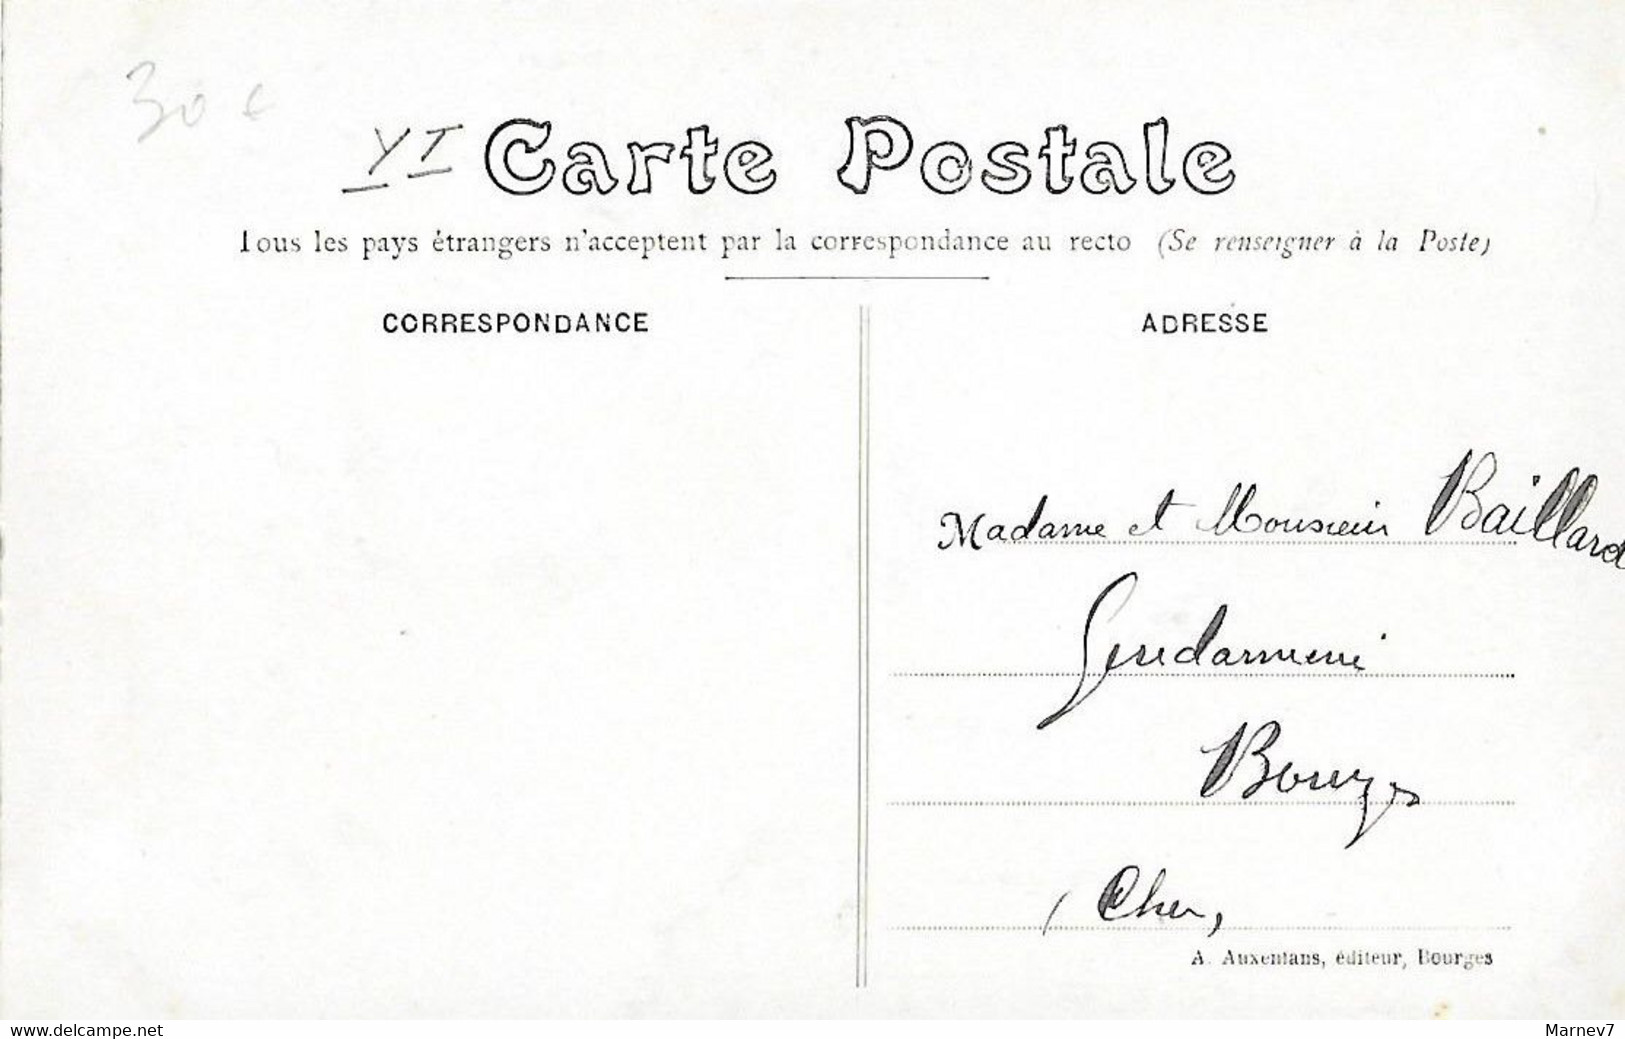 30 €
YI Carte Postale
Tous les pays étrangers n'acceptent par la correspondance au recto (Se renseigner à la Poste)
CORRESPONDANCE
ADRESSE
Madame et Monsieur Baillard
Gendarmerie
Bourges
(Cher,
A. Auxenfans, éditeur, Bourges
www.delcampe.net
Marnev7